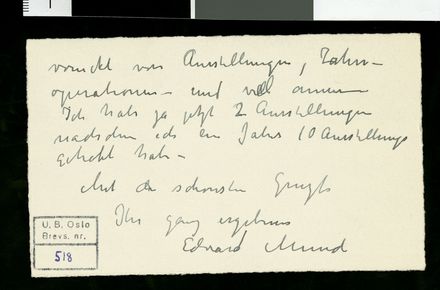 verrückt von Ausstellungen, Zahn-
operationen und
Ich habe ja jetzt 2 Ausstellungen
nachdem ich ein Jahr 10 Ausstellungen
gehabt habe –
Mit den schönsten Grüßen
Ihr ganz ergebener
Edvard Munch
U. B. Oslo
Brevs. nr.
518